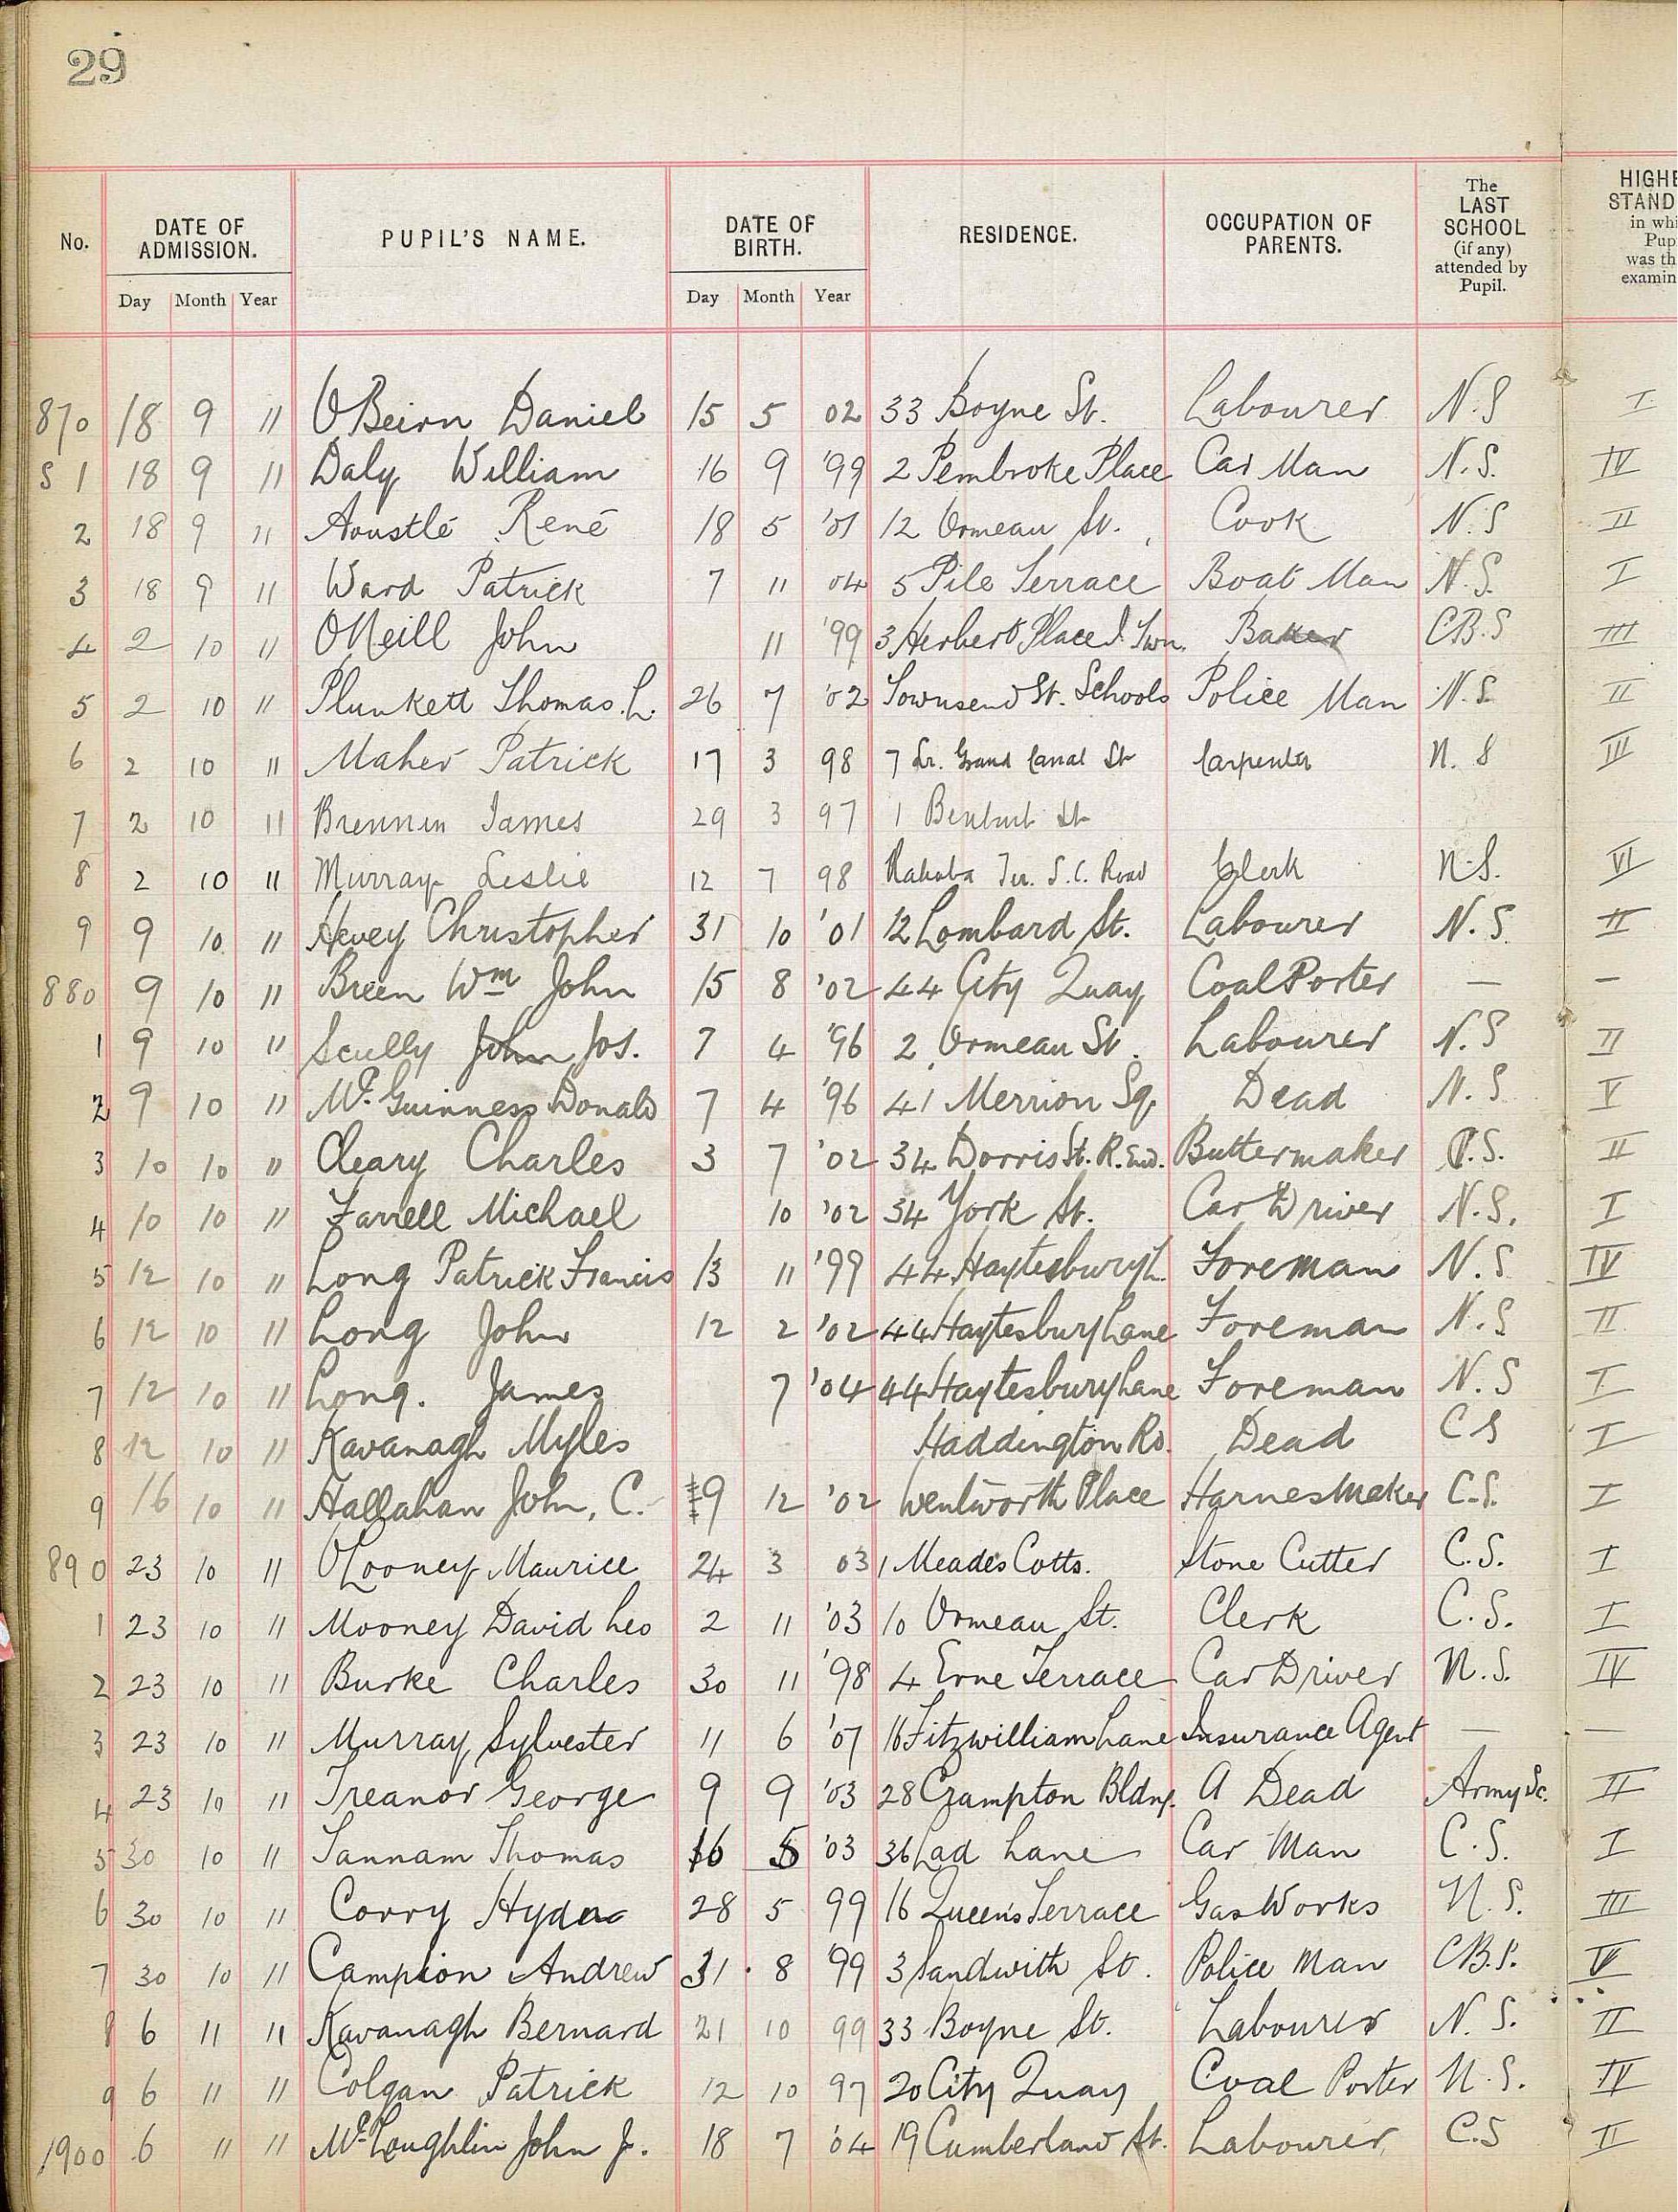 29
No. DATE OF ADMISSION. PUPIL'S NAME. DATE OF BIRTH. RESIDENCE. OCCUPATION OF PARENTS. The LAST SCHOOL (if any) attended by Pupil. HIGHE STAND in whi Pup was th examin
Day Month Year Day Month Year
870 18 9 11 O'Beirn Daniel 15 5 02 33 Boyne St. Labourer N.S I
81 18 9 11 Daly William 16 9 '99 2 Pembroke Place Car Man N.S. IV
2 18 9 11 Aoustlé René 18 5 '01 12 Ormeau St. Cook N.S II
3 18 9 11 Ward Patrick 7 11 04 5 Pile Terrace Boat Man N.S. I
4 2 10 11 O'Neill John 11 '99 3 Herbert Place Baker C.B.S III
5 2 10 11 Plunkett Thomas. L. 26 7 '02 Townsend St. Schools Police Man N.S. II
6 2 10 11 Maher Patrick 17 3 98 7 Lr. Grand Canal St Carpenter N. S III
7 2 10 11 Brennan James 29 3 97 1 St
8 2 10 11 Murray Leslie 12 7 98 Ter. S.C. Road Clerk N.S. VI
9 9 10 11 Hevey Christopher 31 10 '01 12 Lombard St. Labourer N.S. II
880 9 10 11 Breen Wm John 15 8 '02 44 City Quay Coal Porter — —
1 9 10 11 Scully John Jos. 7 4 '96 2 Ormeau St. Labourer N.S II
2 9 10 11 McGuinness Donald 7 4 '96 41 Merrion Sq. Dead N.S. V
3 10 10 11 Cleary Charles 3 7 '02 34 Dorris St. R. End. Buttermaker P.S. II
4 10 10 11 Farrell Michael 10 '02 34 York St. Car Driver N.S. I
5 12 10 11 Long Patrick Francis 13 11 '99 44 Haytesbury L. Foreman N.S IV
6 12 10 11 Long John 12 2 '02 44 Haytesbury Lane Foreman N.S II
7 12 10 11 Long. James 7 '04 44 Haytesbury Lane Foreman N.S I
8 12 10 11 Kavanagh Myles Haddington Rd. Dead C S I
9 16 10 11 Hallahan John, C. 9 12 '02 Wentworth Place Harnesmaker C.S. I
890 23 10 11 O'Looney Maurice 24 3 03 1 Meades Cotts. Stone Cutter C.S. I
1 23 10 11 Mooney David Leo 2 11 '03 10 Ormeau St. Clerk C.S. I
2 23 10 11 Burke Charles 30 11 '98 4 Erne Terrace Car Driver N.S. IV
3 23 10 11 Murray Sylvester 11 6 '07 16 Fitzwilliam Lane Insurance Agent — —
4 23 10 11 Treanor George 9 9 '03 28 Crampton Bldng. A Dead Army Sc. II
5 30 10 11 Tannam Thomas 16 5 '03 36 Lad Lane Car Man C.S. I
6 30 10 11 Corry 28 5 99 16 Queens Terrace Gas Works N.S. III
7 30 10 11 Campion Andrew 31 8 '99 3 Sandwith St. Police Man C.B.S. V
8 6 11 11 Kavanagh Bernard 21 10 99 33 Boyne St. Labourer N.S. II
9 6 11 11 Colgan Patrick 12 10 97 20 City Quay Coal Porter N.S. IV
1900 6 11 11 McLoughlin John J. 18 7 '04 19 Cumberland St. Labourer C.S II